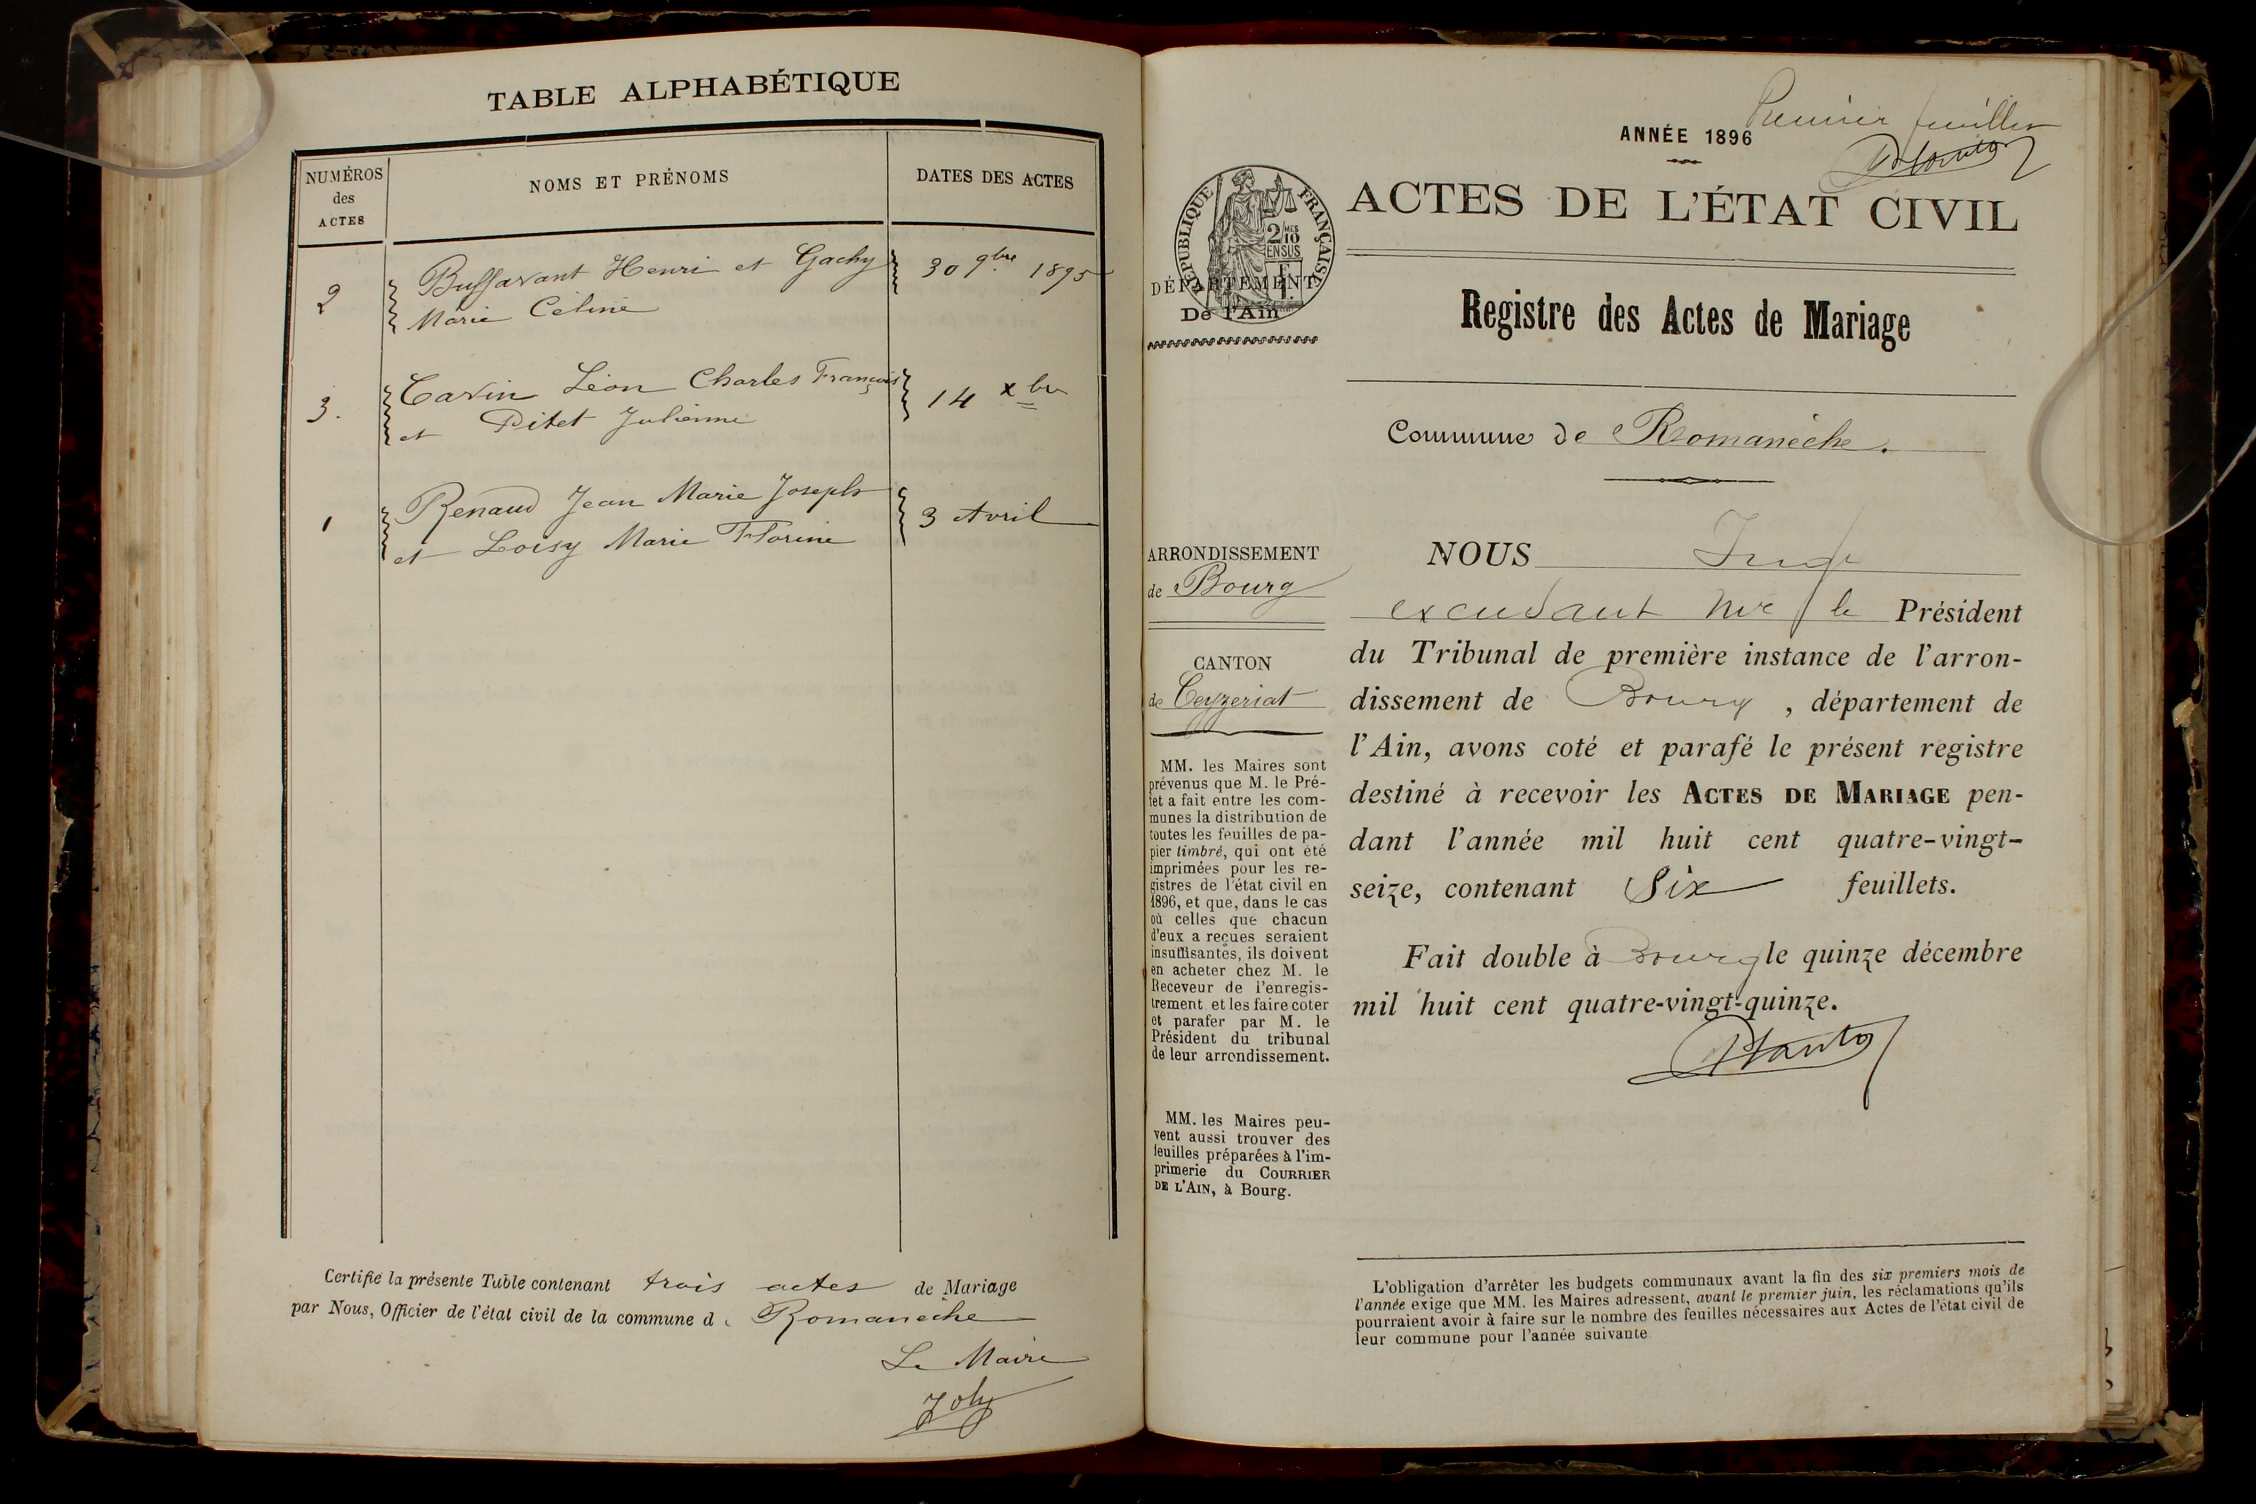 TABLE ALPHABÉTIQUE
NUMÉROS
des
ACTES
NOMS ET PRÉNOMS
DATES DES ACTES
2 Buffavant Henri et Gachy 30 9bre 1895
Marie Céline
3. Cavin Léon Charles François 14 xbre
et Pitet Julienne
1 Renaud Jean Marie Joseph 3 Avril
et Loisy Marie Florine
Certifié la présente Table contenant trois actes de Mariage
par Nous, Officier de l'état civil de la commune d Romanèche
Le Maire
Joly
Premier feuillet
ANNÉE 1896
ACTES DE L'ÉTAT CIVIL
RÉPUBLIQUE FRANÇAISE
2/10 MES
EN SUS
DÉPARTEMENT
De l'Ain
Registre des Actes de Mariage
Commune de Romanèche.
ARRONDISSEMENT
de Bourg
CANTON
de Ceyzeriat
MM. les Maires sont
prévenus que M. le Pré-
fet a fait entre les com-
munes la distribution de
toutes les feuilles de pa-
pier timbré, qui ont été
imprimées pour les re-
gistres de l'état civil en
1896, et que, dans le cas
où celles que chacun
d'eux a reçues seraient
insuffisantes, ils doivent
en acheter chez M. le
Receveur de l'enregis-
trement et les faire coter
et parafer par M. le
Président du tribunal
de leur arrondissement.
MM. les Maires peu-
vent aussi trouver des
feuilles préparées à l'im-
primerie du COURRIER
DE L'AIN, à Bourg.
NOUS Juge
le Président
du Tribunal de première instance de l'arron-
dissement de Bourg, département de
l'Ain, avons coté et parafé le présent registre
destiné à recevoir les ACTES DE MARIAGE pen-
dant l'année mil huit cent quatre-vingt-
seize, contenant Six feuillets.
Fait double à Bourg le quinze décembre
mil huit cent quatre-vingt-quinze.
L'obligation d'arrêter les budgets communaux avant la fin des six premiers mois de
l'année exige que MM. les Maires adressent, avant le premier juin, les réclamations qu'ils
pourraient avoir à faire sur le nombre des feuilles nécessaires aux Actes de l'état civil de
leur commune pour l'année suivante